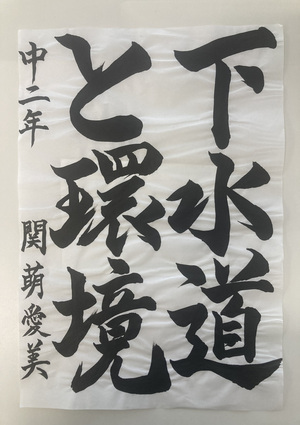 下水道
と環境
中二年 関萌愛美